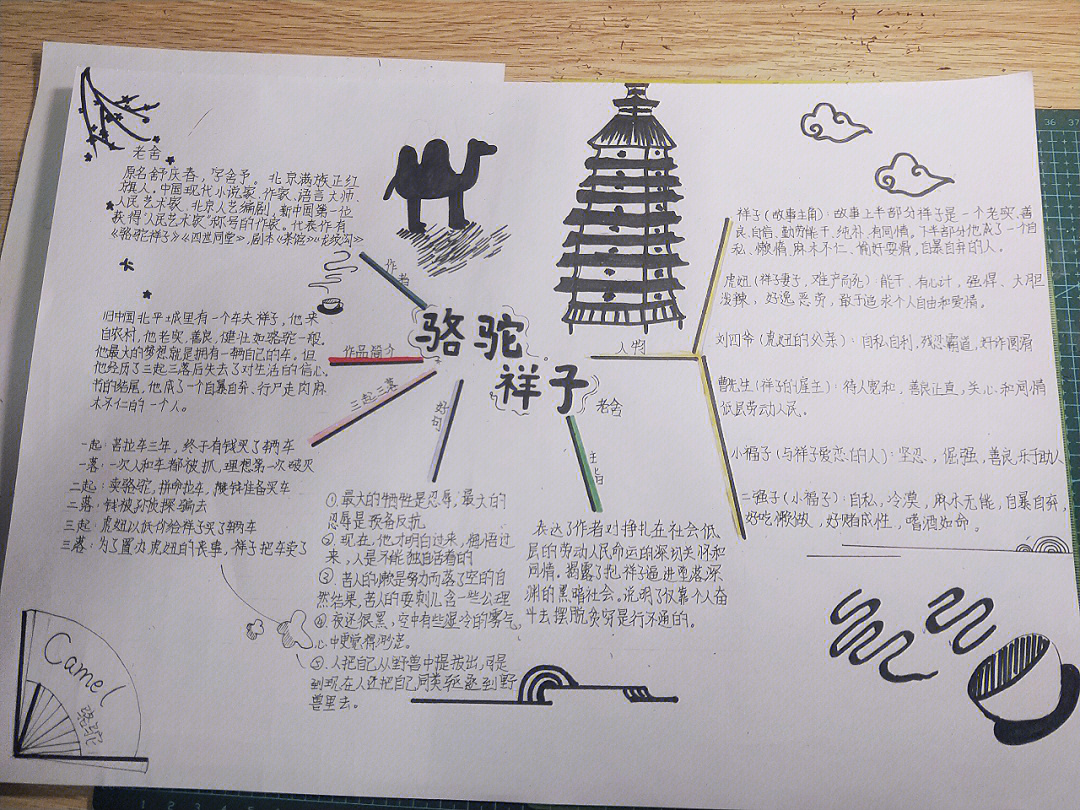 老舍
原名舒庆春，字舍予。北京满族正红
旗人。中国现代小说家、作家、语言大师、
人民艺术家、北京人艺编剧，新中国第一位
获得"人民艺术家"称号的作家。代表作有
《骆驼祥子》《四世同堂》，剧本《茶馆》《龙须沟》
作者
旧中国北平城里有一个车夫祥子，他来
自农村，他老实、善良、健壮如骆驼一般。
他最大的梦想就是拥有一辆自己的车。但
他经历了三起三落后失去了对生活的信心。
书的结尾，他成了一个自暴自弃、行尸走肉麻
木不仁的一个人。
作品简介
三起三落
一起：苦拉车三年，终于有钱买了一辆车
一落：一次人和车都被抓，理想第一次破灭
二起：卖骆驼，拼命拉车，攒钱准备买车
二落：钱被孙侦探骗去
三起：虎妞以低价给祥子买了一辆车
三落：为了置办虎妞的丧事，祥子把车卖了
好句
①.最大的牺牲是忍辱，最大的
忍辱是预备反抗
②现在，他才明白过来，悔悟过
来，人是不能独自活着的
③苦人的懒是努力而落了空的自
然结果，苦人的耍刺儿含一些公理
④夜还很黑，空中有些湿冷的雾气
心中更觉得渺茫。
⑤.人把自己从野兽中提拔出，可是
到现在人还把自己同类驱逐到野
兽里去。
骆驼
祥子
老舍
主旨
表达了作者对挣扎在社会低
层的劳动人民命运的深切关怀和
同情。揭露了把祥子逼进堕落深
渊的黑暗社会。说明了仅靠个人奋
斗去摆脱贫穷是行不通的。
人物
祥子(故事主角)：故事上半部分祥子是一个老实、善
良、自信、勤劳能干、纯朴、有同情。下半部分他成了一个自
私、懒惰、麻木不仁、偷奸耍滑，自暴自弃的人。
虎妞(祥子妻子，难产而死)：能干、有心计，强悍、大胆
泼辣，好逸恶劳，敢于追求个人自由和爱情。
刘四爷(虎妞的父亲)：自私自利，残忍霸道，奸诈圆滑
曹先生(祥子的雇主)：待人宽和，善良正直，关心和同情
低层劳动人民。
小福子(与祥子爱恋的人)：坚忍，倔强，善良乐于助人
二强子(小福子)：自私，冷漠，麻木无能，自暴自弃，
好吃懒做，好赌成性，嗜酒如命。
Camel
骆驼
36 37
1 2 3 4